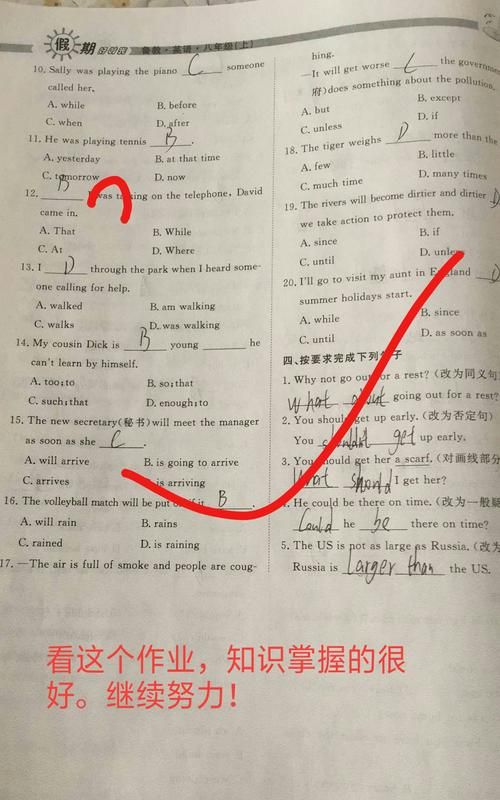 假期 鲁教·英语·八年级(上)
10. Sally was playing the piano C someone
called her.
A. while B. before
C. when D. after
11. He was playing tennis B.
A. yesterday B. at that time
C. tomorrow D. now
12. B I was talking on the telephone, David
came in.
A. That B. While
C. At D. Where
13. I D through the park when I heard some-
one calling for help.
A. walked B. am walking
C. walks D. was walking
14. My cousin Dick is B young he
can't learn by himself.
A. too;to B. so;that
C. such;that D. enough;to
15. The new secretary(秘书)will meet the manager
as soon as she C.
A. will arrive B. is going to arrive
C. arrives is arriving
16. The volleyball match will be put off if it B.
A. will rain B. rains
C. rained D. is raining
17. —The air is full of smoke and people are coug-
hing.
—It will get worse C the governme
府)does something about the pollution.
A. but B. except
C. unless D. if
18. The tiger weighs D more than the
A. few B. little
C. much time D. many times
19. The rivers will become dirtier and dirtier D
we take action to protect them.
A. since B. if
C. until D. unless
20. I'll go to visit my aunt in England D
summer holidays start.
A. while B. since
C. until D. as soon as
四、按要求完成下列句子
1. Why not go out for a rest? (改为同义句
What about going out for a rest?
2. You should get up early. (改为否定句)
You shouldn't get up early.
3. You should get her a scarf. (对画线部分
What should I get her?
4. He could be there on time. (改为一般疑
Could he be there on time?
5. The US is not as large as Russia. (改为
Russia is larger than the US.
看这个作业，知识掌握的很
好。继续努力！